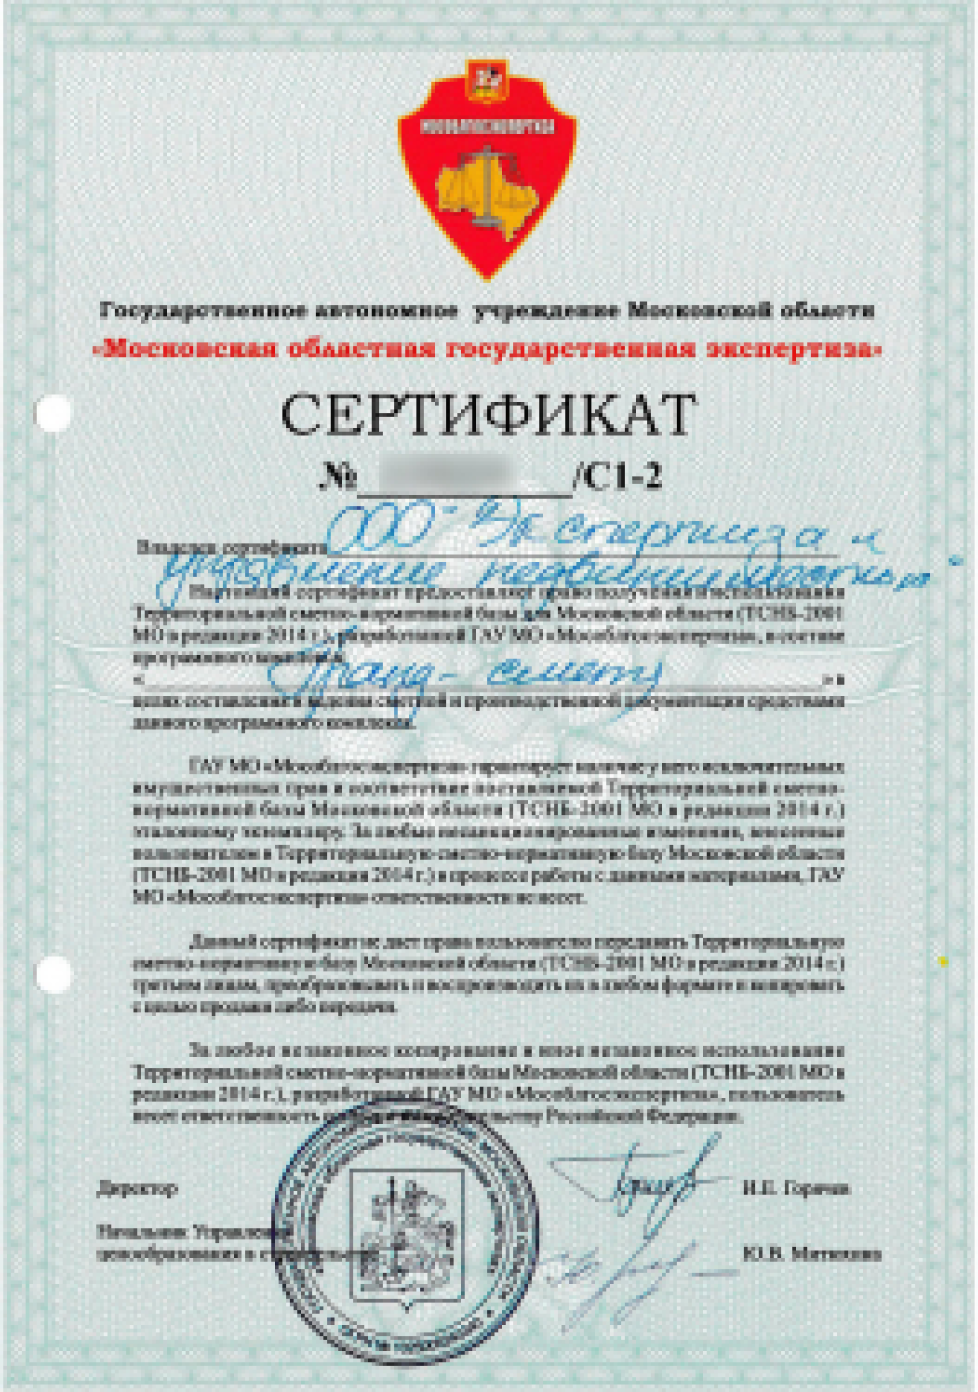 МОСОБЛГОСЭКСПЕРТИЗА
Государственное автономное учреждение Московской области
«Московская областная государственная экспертиза»
СЕРТИФИКАТ
№ /С1-2
Владелец сертификата ООО "Экспертиза и
управление недвижимостью"
Настоящий сертификат предоставляет право получения и использования
Территориальной сметно-нормативной базы для Московской области (ТСНБ-2001
МО в редакции 2014 г.), разработанной ГАУ МО «Мособлгосэкспертиза», в составе
программного комплекса
« Гранд-смета » в
целях составления и ведения сметной и производственной документации средствами
данного программного комплекса.
ГАУ МО «Мособлгосэкспертиза» гарантирует наличие у него исключительных
имущественных прав и соответствие поставляемой Территориальной сметно-
нормативной базы Московской области (ТСНБ-2001 МО в редакции 2014 г.)
эталонному экземпляру. За любые несанкционированные изменения, внесенные
пользователем в Территориальную сметно-нормативную базу Московской области
(ТСНБ-2001 МО в редакции 2014 г.) в процессе работы с данными материалами, ГАУ
МО «Мособлгосэкспертиза» ответственности не несет.
Данный сертификат не дает права пользователю передавать Территориальную
сметно-нормативную базу Московской области (ТСНБ-2001 МО в редакции 2014 г.)
третьим лицам, преобразовывать и воспроизводить их в любом формате и копировать
с целью продажи либо передачи.
За любое незаконное копирование и иное незаконное использование
Территориальной сметно-нормативной базы Московской области (ТСНБ-2001 МО в
редакции 2014 г.), разработанной ГАУ МО «Мособлгосэкспертиза», пользователь
несет ответственность Российской Федерации.
Директор И.Е. Горячев
Начальник Управления
ценообразования в строительстве Ю.В.